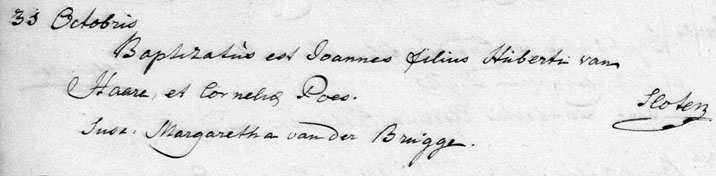 31 Octobris
Baptizatus est Joannes filius Huberti van
Haare, et Corneliæ Poes.
Susc. Margaretha van der Brugge.
Sloten